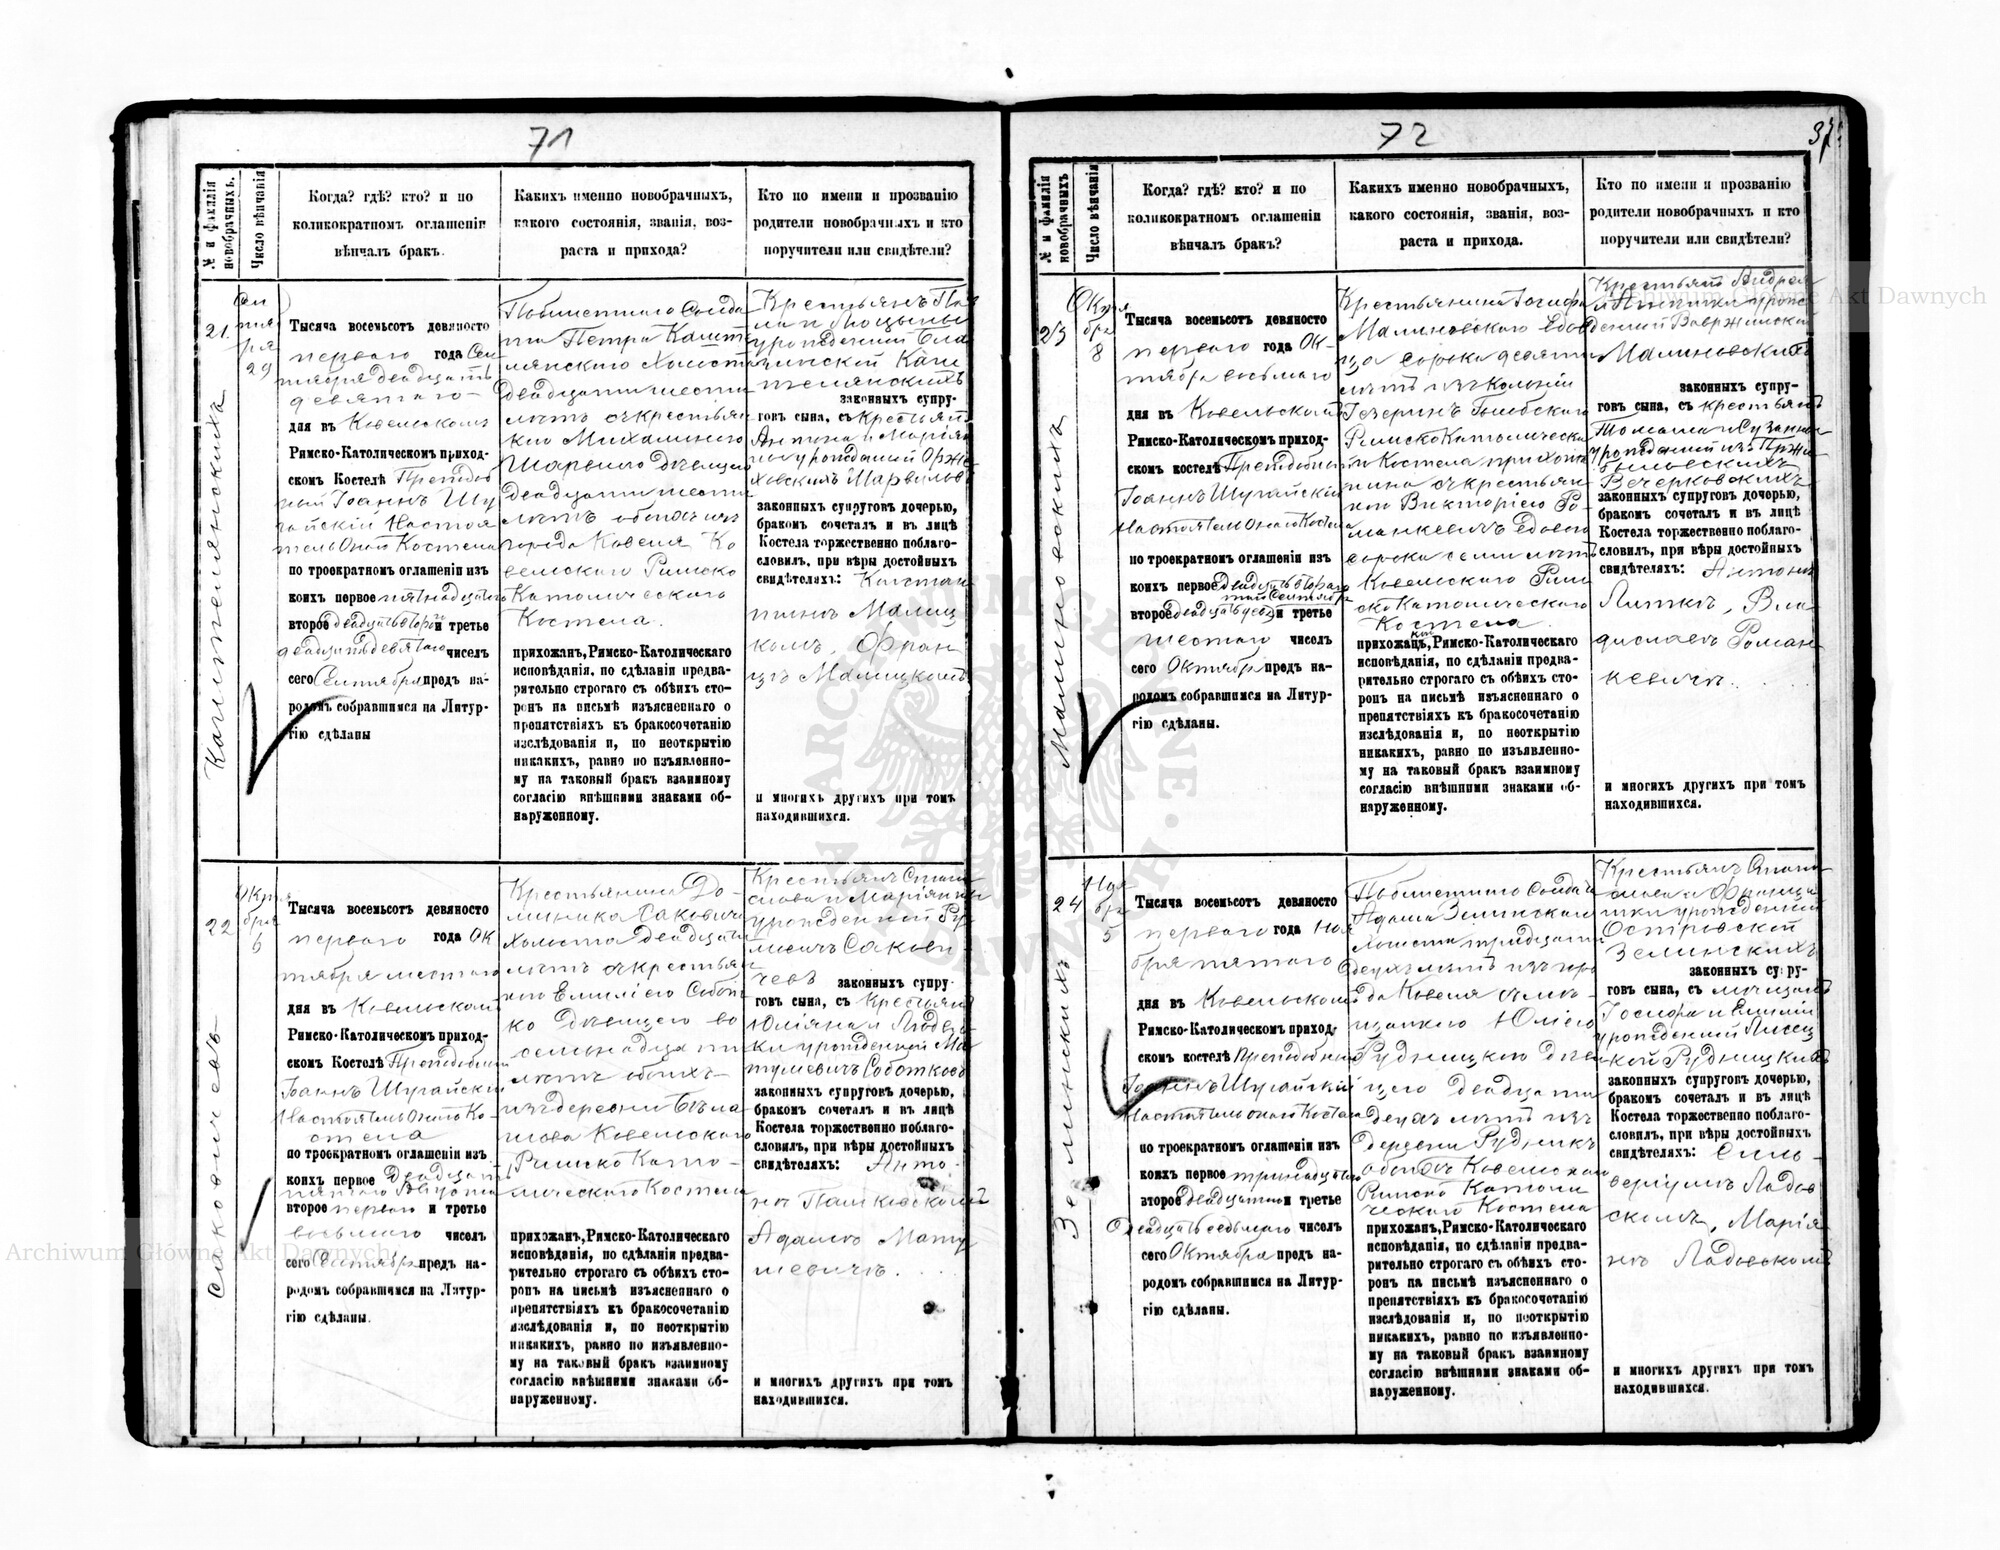 71
№ и фамилія новобрачныхъ.
Число вѣнчанія
Когда? гдѣ? кто? и по
коликократномъ оглашеніи
вѣнчалъ бракъ.
Какихъ именно новобрачныхъ,
какого состоянія, званія, воз-
раста и прихода?
Кто по имени и прозванію
родители новобрачныхъ и кто
поручители или свидѣтели?
21.
Сен
тяб
ря
29
Тысяча восемьсотъ девяносто
перваго года Сен
тября двадцать
девятаго
дня въ Ковельскомъ
Римско-Католическомъ приход-
скомъ Костелѣ Преподоб
ный Іоаннъ Шу
гайскій Настоя
тель Оного Костела
по троекратномъ оглашеніи изъ
коихъ первое пятнадцатаго
второе двадцать втораго и третье
двадцать девятаго чиселъ
сего Сентября предъ на-
родомъ собравшимся на Литур-
гію сдѣланы
Побилетнаго Солда
та Петра
Холоста
двадцати шести
лѣтъ съ крестьян
кою
дѣвицею
двадцати шести
лѣтъ обоихъ изъ
города Ковеля Ко
вельскаго Римско
Католическаго
Костела.
прихожанъ, Римско-Католическаго
исповѣданія, по сдѣланіи предва-
рительно строгаго съ обѣихъ сто-
ронъ на письмѣ изъясненнаго о
препятствіяхъ къ бракосочетанію
изслѣдованія и, по неоткрытію
никакихъ, равно по изъявленно-
му на таковый бракъ взаимному
согласію внѣшними знаками об-
наруженному.
Крестьянъ Пав
ла и Люцыны
урожденной
законныхъ супру-
говъ сына, съ крестьянъ
Антона и Маріан
ны урожденной Орже
ховскихъ
законныхъ супруговъ дочерью,
бракомъ сочеталъ и въ лицѣ
Костела торжественно поблаго-
словилъ, при вѣры достойныхъ
свидѣтеляхъ: Констан
тиномъ Малиц
комъ, Фран
цъ Малицкомъ
и многихъ другихъ при томъ
находившихся.
22
Октя
бря
6
Саковичевъ
Тысяча восемьсотъ девяносто
перваго года Ок
тября шестого
дня въ Ковельскомъ
Римско-Католическомъ приход-
скомъ Костелѣ Преподобный
Іоаннъ Шугайскій
Настоятель Оного Ко-
стела
по троекратномъ оглашеніи изъ
коихъ первое двадцать
пятаго Августа
второе перваго и третье
восьмаго чиселъ
сего Сентября предъ на-
родомъ собравшимся на Литур-
гію сдѣланы.
Крестьянина До-
миника Саковича
Холоста двадцати
лѣтъ съ крестьян
кою Емиліею Собот
ко дѣвицею во
семьнадцати
лѣтъ обоихъ
изъ деревни
Ковельского
Римско Като-
лическаго Костела
прихожанъ, Римско-Католическаго
исповѣданія, по сдѣланіи предва-
рительно строгаго съ обѣихъ сто-
ронъ на письмѣ изъясненнаго о
препятствіяхъ къ бракосочетанію
изслѣдованія и, по неоткрытію
никакихъ, равно по изъявленно-
му на таковый бракъ взаимному
согласію внѣшними знаками об-
наруженному.
Крестьянъ Стани
слава и Маріянны
урожденной
Сакови
чевъ законныхъ супру-
говъ сына, съ Крестьянъ
Юліяна и Людви
ки урожденной Ма
тушевичъ Соботковъ
законныхъ супруговъ дочерью,
бракомъ сочеталъ и въ лицѣ
Костела торжественно поблаго-
словилъ, при вѣры достойныхъ
свидѣтеляхъ: Анто-
нъ Пашковскомъ
Адамъ Мату
шевичъ.
и многихъ другихъ при томъ
находившихся.
72
37
№ и фамилія новобрачныхъ
Число вѣнчанія
Когда? гдѣ? кто? и по
коликократномъ оглашеніи
вѣнчалъ бракъ?
Какихъ именно новобрачныхъ,
какого состоянія, званія, воз-
раста и прихода.
Кто по имени и прозванію
родители новобрачныхъ и кто
поручители или свидѣтели?
23
Октя
бря
8
Малиновскихъ
Тысяча восемьсотъ девяносто
перваго года Ок-
тября восьмаго
дня въ Ковельскомъ
Римско-Католическомъ приход-
скомъ костелѣ Преподобный
Іоаннъ Шугайскій
Настоятель Оного Костела
по троекратномъ оглашеніи изъ
коихъ первое двадцать втораго
второе двадцать девят и третье
шестаго чиселъ
сего Октября предъ на-
родомъ собравшимся на Литур-
гію сдѣланы.
Крестьянина Іосифа
Малиновскаго вдов
ца сорока девяти
лѣтъ изъ колоніи
Римско Католическа
го Костела прихожа
нина съ крестьян
кою Викторіею Ро
манкевичъ вдовою
сорока семи лѣтъ
Ковельского Рим
ско Католическаго
Костела
прихожанъ, Римско-Католическаго
исповѣданія, по сдѣланіи предва-
рительно строгаго съ обѣихъ сто-
ронъ на письмѣ изъясненнаго о
препятствіяхъ къ бракосочетанію
изслѣдованія и, по неоткрытію
никакихъ, равно по изъявленно-
му на таковый бракъ взаимному
согласію внѣшними знаками об-
наруженному.
Крестьянъ Андрея
и урож-
денной
Малиновскихъ
законныхъ супру-
говъ сына, съ крестьянъ
Томаша и Сузанны
урожденной изъ
Вечерковскихъ
законныхъ супруговъ дочерью,
бракомъ сочеталъ и въ лицѣ
Костела торжественно поблаго-
словилъ, при вѣры достойныхъ
свидѣтеляхъ: Антонъ
Литкъ, Вла
диславъ Роман
кевичъ.
и многихъ другихъ при томъ
находившихся.
24
Ноя
бря
5
Зелинскихъ
Тысяча восемьсотъ девяносто
перваго года Ноя
бря пятаго
дня въ Ковельскомъ
Римско-Католическомъ приход-
скомъ костелѣ Преподобный
Іоаннъ Шугайскій
Настоятель оного Костела
по троекратномъ оглашеніи изъ
коихъ первое тринадцатаго
второе двадцатаго и третье
Двадцать седьмаго чиселъ
сего Октября предъ на-
родомъ собравшимся на Литур-
гію сдѣланы.
Побилетнаго Солдата
Адама Зелинскаго
Холоста тридцати
двухъ лѣтъ изъ горо
да Ковеля съ мѣ-
щанкою Юліею
Рудницкою дѣви
цею двадцати
двухъ лѣтъ изъ
деревни Рудникъ
обоихъ Ковельского
Римско Католи
ческаго Костела
прихожанъ, Римско-Католическаго
исповѣданія, по сдѣланіи предва-
рительно строгаго съ обѣихъ сто-
ронъ на письмѣ изъясненнаго о
препятствіяхъ къ бракосочетанію
изслѣдованія и, по неоткрытію
никакихъ, равно по изъявленно-
му на таковый бракъ взаимному
согласію внѣшними знаками об-
наруженному.
Крестьянъ Стани
слава и Францы
шки урожденной
Островской
Зелинскихъ
законныхъ супру-
говъ сына, съ мѣщанъ
Іосифа и Емиліи
урожденной Лисец
кой Рудницкихъ
законныхъ супруговъ дочерью,
бракомъ сочеталъ и въ лицѣ
Костела торжественно поблаго-
словилъ, при вѣры достойныхъ
свидѣтеляхъ: Силь-
веріумъ Ладов
скомъ, Марія
нъ Ладовскомъ
и многихъ другихъ при томъ
находившихся.
ARCHIWUM GŁÓWNE AKT DAWNYCH
Archiwum Główne Akt Dawnych
Archiwum Główne Akt Dawnych